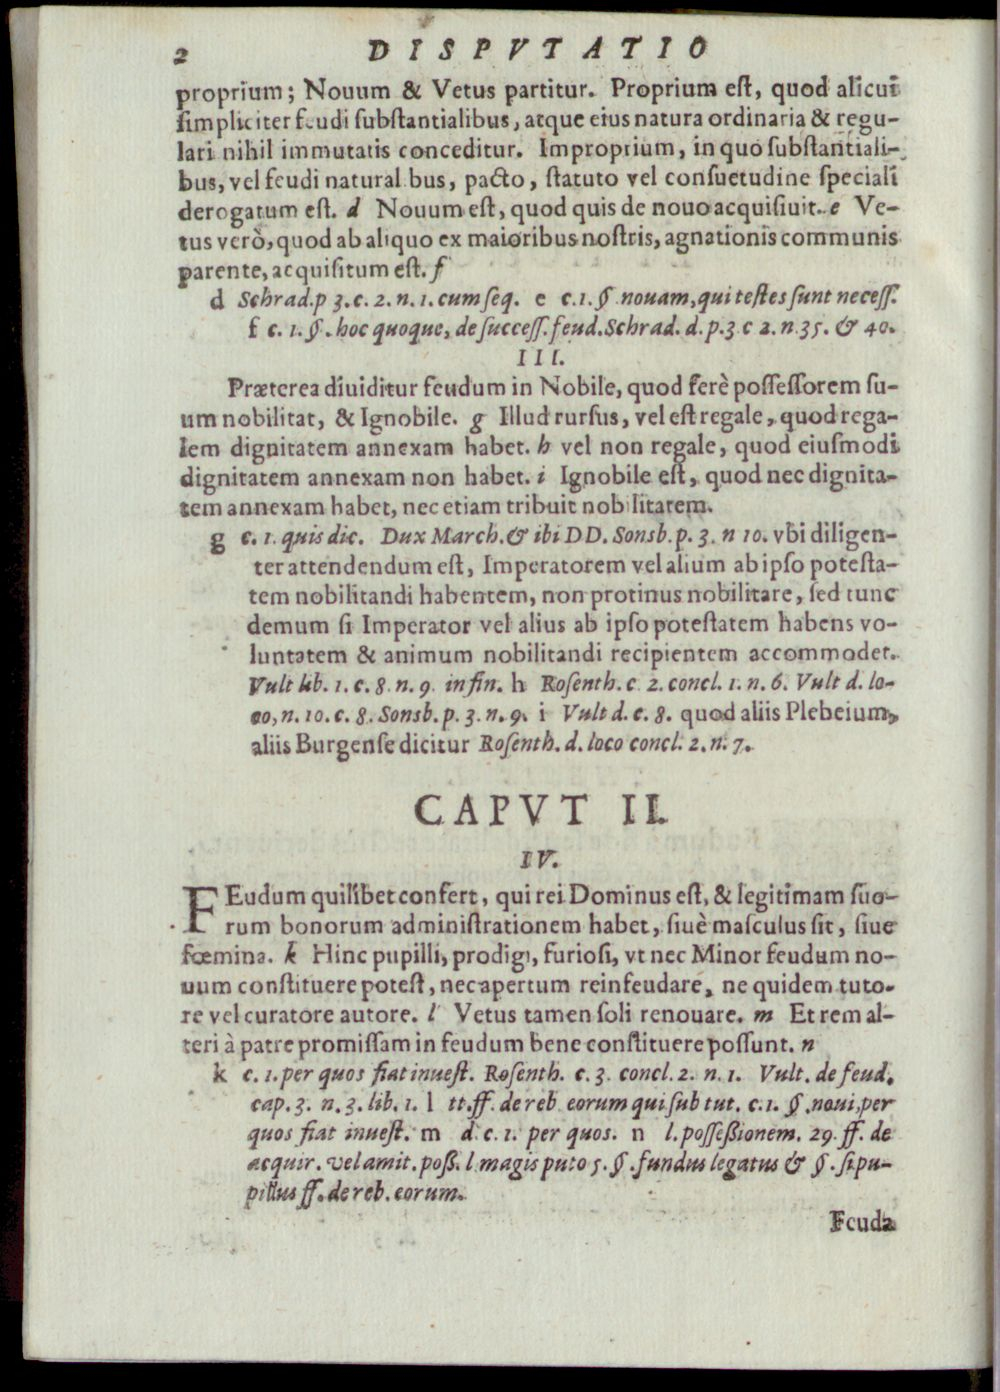 2 DISPVTATIO
proprium; Nouum & Vetus partitur. Proprium eſt, quod alicui
ſimpliciter feudi ſubſtantialibus, atque eius natura ordinaria & regu-
lari nihil immutatis conceditur. Improprium, in quo ſubſtantiali-
bus, vel feudi natural bus, pacto, ſtatuto vel conſuetudine ſpeciali
derogatum eſt. d Nouum eſt, quod quis de nouo acquiſiuit. e Ve-
tus verò, quod ab aliquo ex maioribus noſtris, agnationis communis
parente, acquiſitum eſt. f
d Schrad. p 3. c. 2. n. 1. cum ſeq. e c. 1. §. nouam, qui teſtes ſunt neceſſ.
f c. 1. §. hoc quoque, de ſucceſſ. feud. Schrad. d. p. 3 c 2. n. 35. & 40.
III.
Præterea diuiditur feudum in Nobile, quod ferè poſſeſſorem ſu-
um nobilitat, & Ignobile. g Illud rurſus, vel eſt regale, quod rega-
lem dignitatem annexam habet. h vel non regale, quod eiuſmodi
dignitatem annexam non habet. i Ignobile eſt, quod nec dignita-
tem annexam habet, nec etiam tribuit nobilitatem.
g c. 1. quis dic. Dux March. & ibi DD. Sonsb. p. 3. n 10. vbi diligen-
ter attendendum eſt, Imperatorem vel alium ab ipſo poteſta-
tem nobilitandi habentem, non protinus nobilitare, ſed tunc
demum ſi Imperator vel alius ab ipſo poteſtatem habens vo-
luntatem & animum nobilitandi recipientem accommodet.
Vult lib. 1. c. 8. n. 9. in fin. h Roſenth. c. 2. concl. 1. n. 6. Vult d. lo-
co, n. 10. c. 8. Sonsb. p. 3. n. 9. i Vult d. c. 8. quod aliis Plebeium,
aliis Burgenſe dicitur Roſenth. d. loco concl. 2. n. 7.
CAPVT II.
IV.
FEudum quilibet confert, qui rei Dominus eſt, & legitimam ſuo-
rum bonorum adminiſtrationem habet, ſiuè maſculus ſit, ſiue
fœmina. k Hinc pupilli, prodigi, furioſi, vt nec Minor feudum no-
uum conſtituere poteſt, nec apertum reinfeudare, ne quidem tuto-
re vel curatore autore. l Vetus tamen ſoli renouare. m Et rem al-
teri à patre promiſſam in feudum bene conſtituere poſſunt. n
k c. 1. per quos fiat inueſt. Roſenth. c. 3. concl. 2. n. 1. Vult. de feud.
cap. 3. n. 3. lib. 1. l tt. ff. de reb. eorum qui ſub tut. c. 1. §. noui, per
quos fiat inueſt. m d. c. 1. per quos. n l. poſſeßionem. 29. ff. de
acquir. vel amit. poß. l. magis puto 5. §. fundus legatus & §. ſi pu-
pillus ff. de reb. eorum.
Feuda